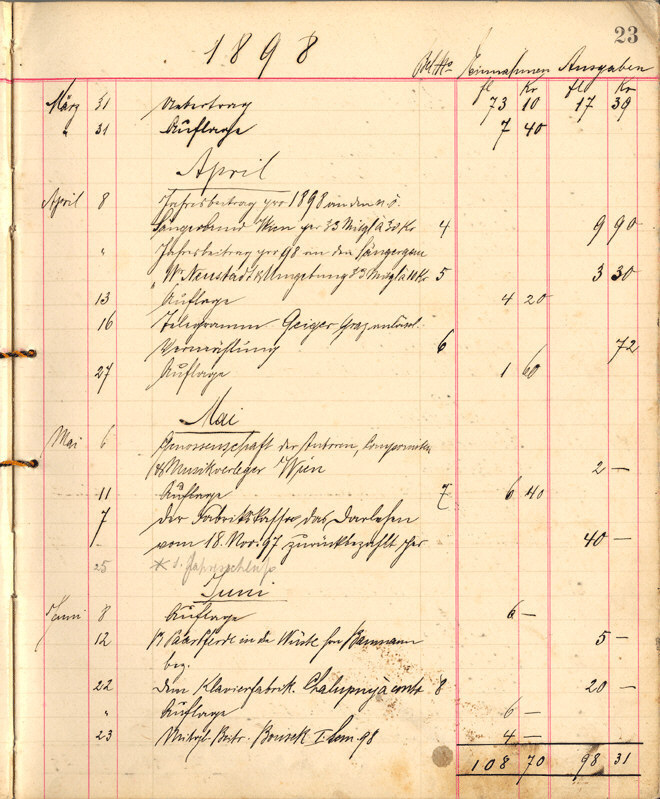 23
1898
Bel. No Einnahmen Ausgaben
fl Kr fl Kr
März 31 Uebertrag 73 10 17 39
" 31 Auflage 7 40
April
April 8 Jahresbeitrag pro 1898 an den n. ö.
Sängerbund Wien per 33 Mitgl à 30 Kr 4 9 90
" Jahresbeitrag pro 98 an den Sängergau
Wr Neustadt & Umgebung 33 Mitgl à 10 Kr 5 3 30
13 Auflage 4 20
16 Telegramm Geiger Graz anlässl.
Vermählung 6 72
27 Auflage 1 60
Mai
Mai 6 Genossenschaft der Autoren, Componisten
& Musikverleger Wien 2 —
11 Auflage 7 6 40
7 der Fabrikskassa das Darlehen
vom 18. Nov. 97 zurückbezahlt per 40 —
25
Juni
Juni 8 Auflage 6 —
12 in die 5 —
bez.
22 dem Klavierfabrik. Chalupny à conto 8 20 —
" Auflage 6 —
23 Mitgl. Beitr. I. Sem. 98 4 —
108 70 98 31